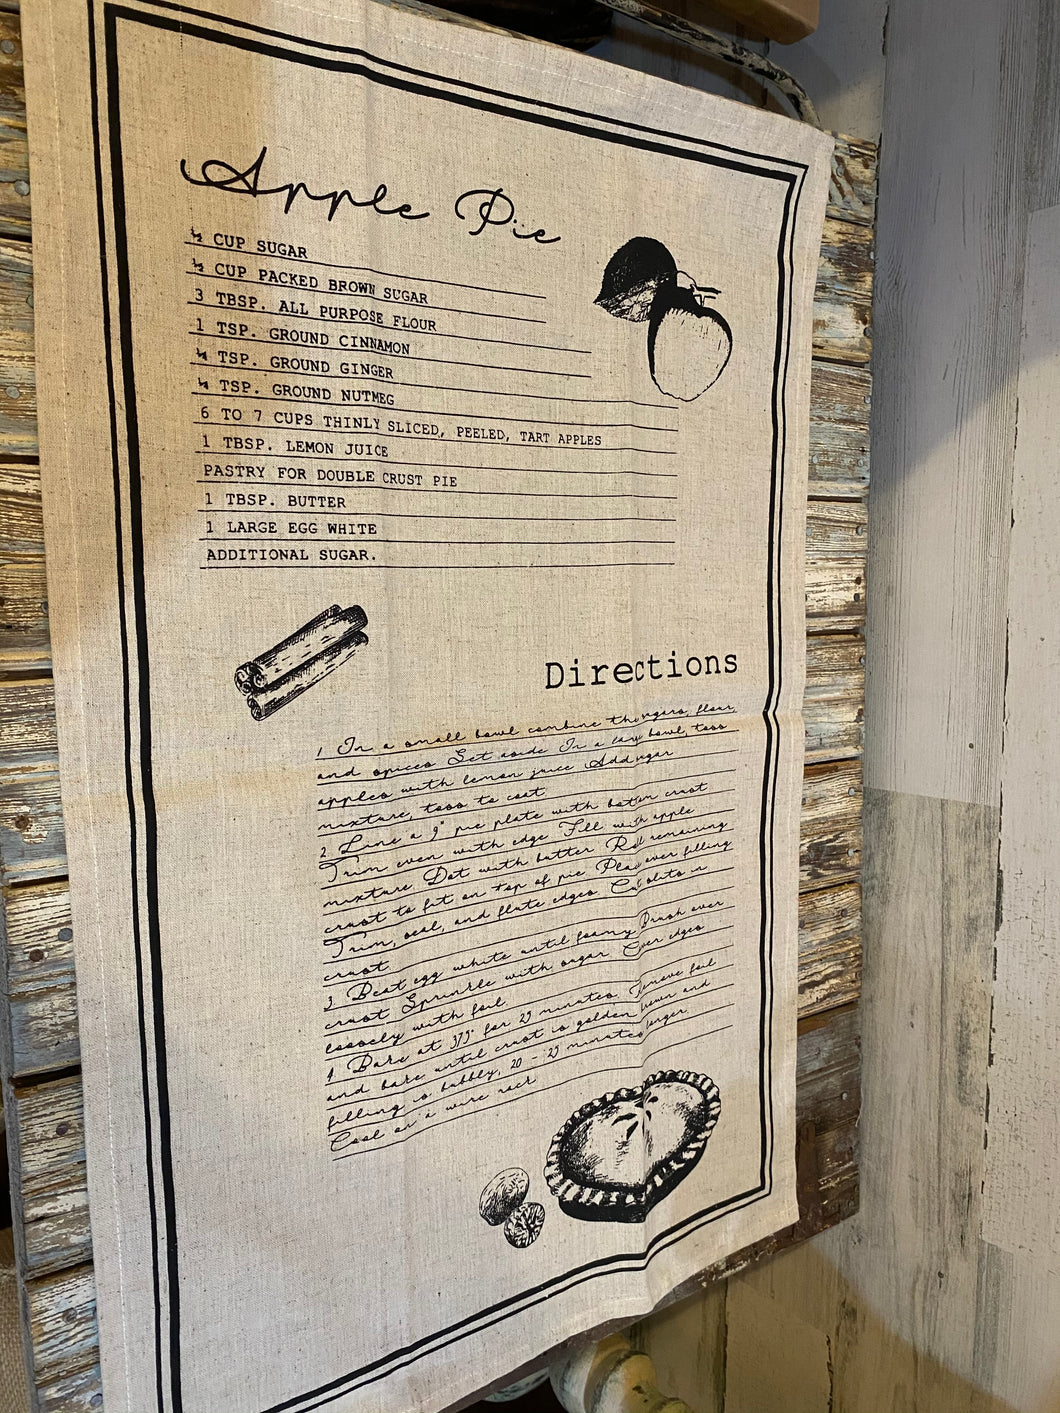 Apple Pie
½ CUP SUGAR
½ CUP PACKED BROWN SUGAR
3 TBSP. ALL PURPOSE FLOUR
1 TSP. GROUND CINNAMON
¼ TSP. GROUND GINGER
¼ TSP. GROUND NUTMEG
6 TO 7 CUPS THINLY SLICED, PEELED, TART APPLES
1 TBSP. LEMON JUICE
PASTRY FOR DOUBLE CRUST PIE
1 TBSP. BUTTER
1 LARGE EGG WHITE
ADDITIONAL SUGAR.
Directions
1 In a small bowl combine the sugars, flour,
and spices Set aside In a large bowl, toss
apples with lemon juice Add sugar
mixture, toss to coat
2 Line a 9" pie plate with bottom crust
Trim even with edge Fill with apple
mixture Dot with butter Roll remaining
crust to fit on top of pie Place over filling
Trim, seal, and flute edges Cut slits in
crust
3 Beat egg white until foamy Brush over
crust Sprinkle with sugar Cover edges
loosely with foil
4 Bake at 375° for 25 minutes Remove foil
and bake until crust is golden brown and
filling is bubbly, 20 - 25 minutes longer
Cool on a wire rack